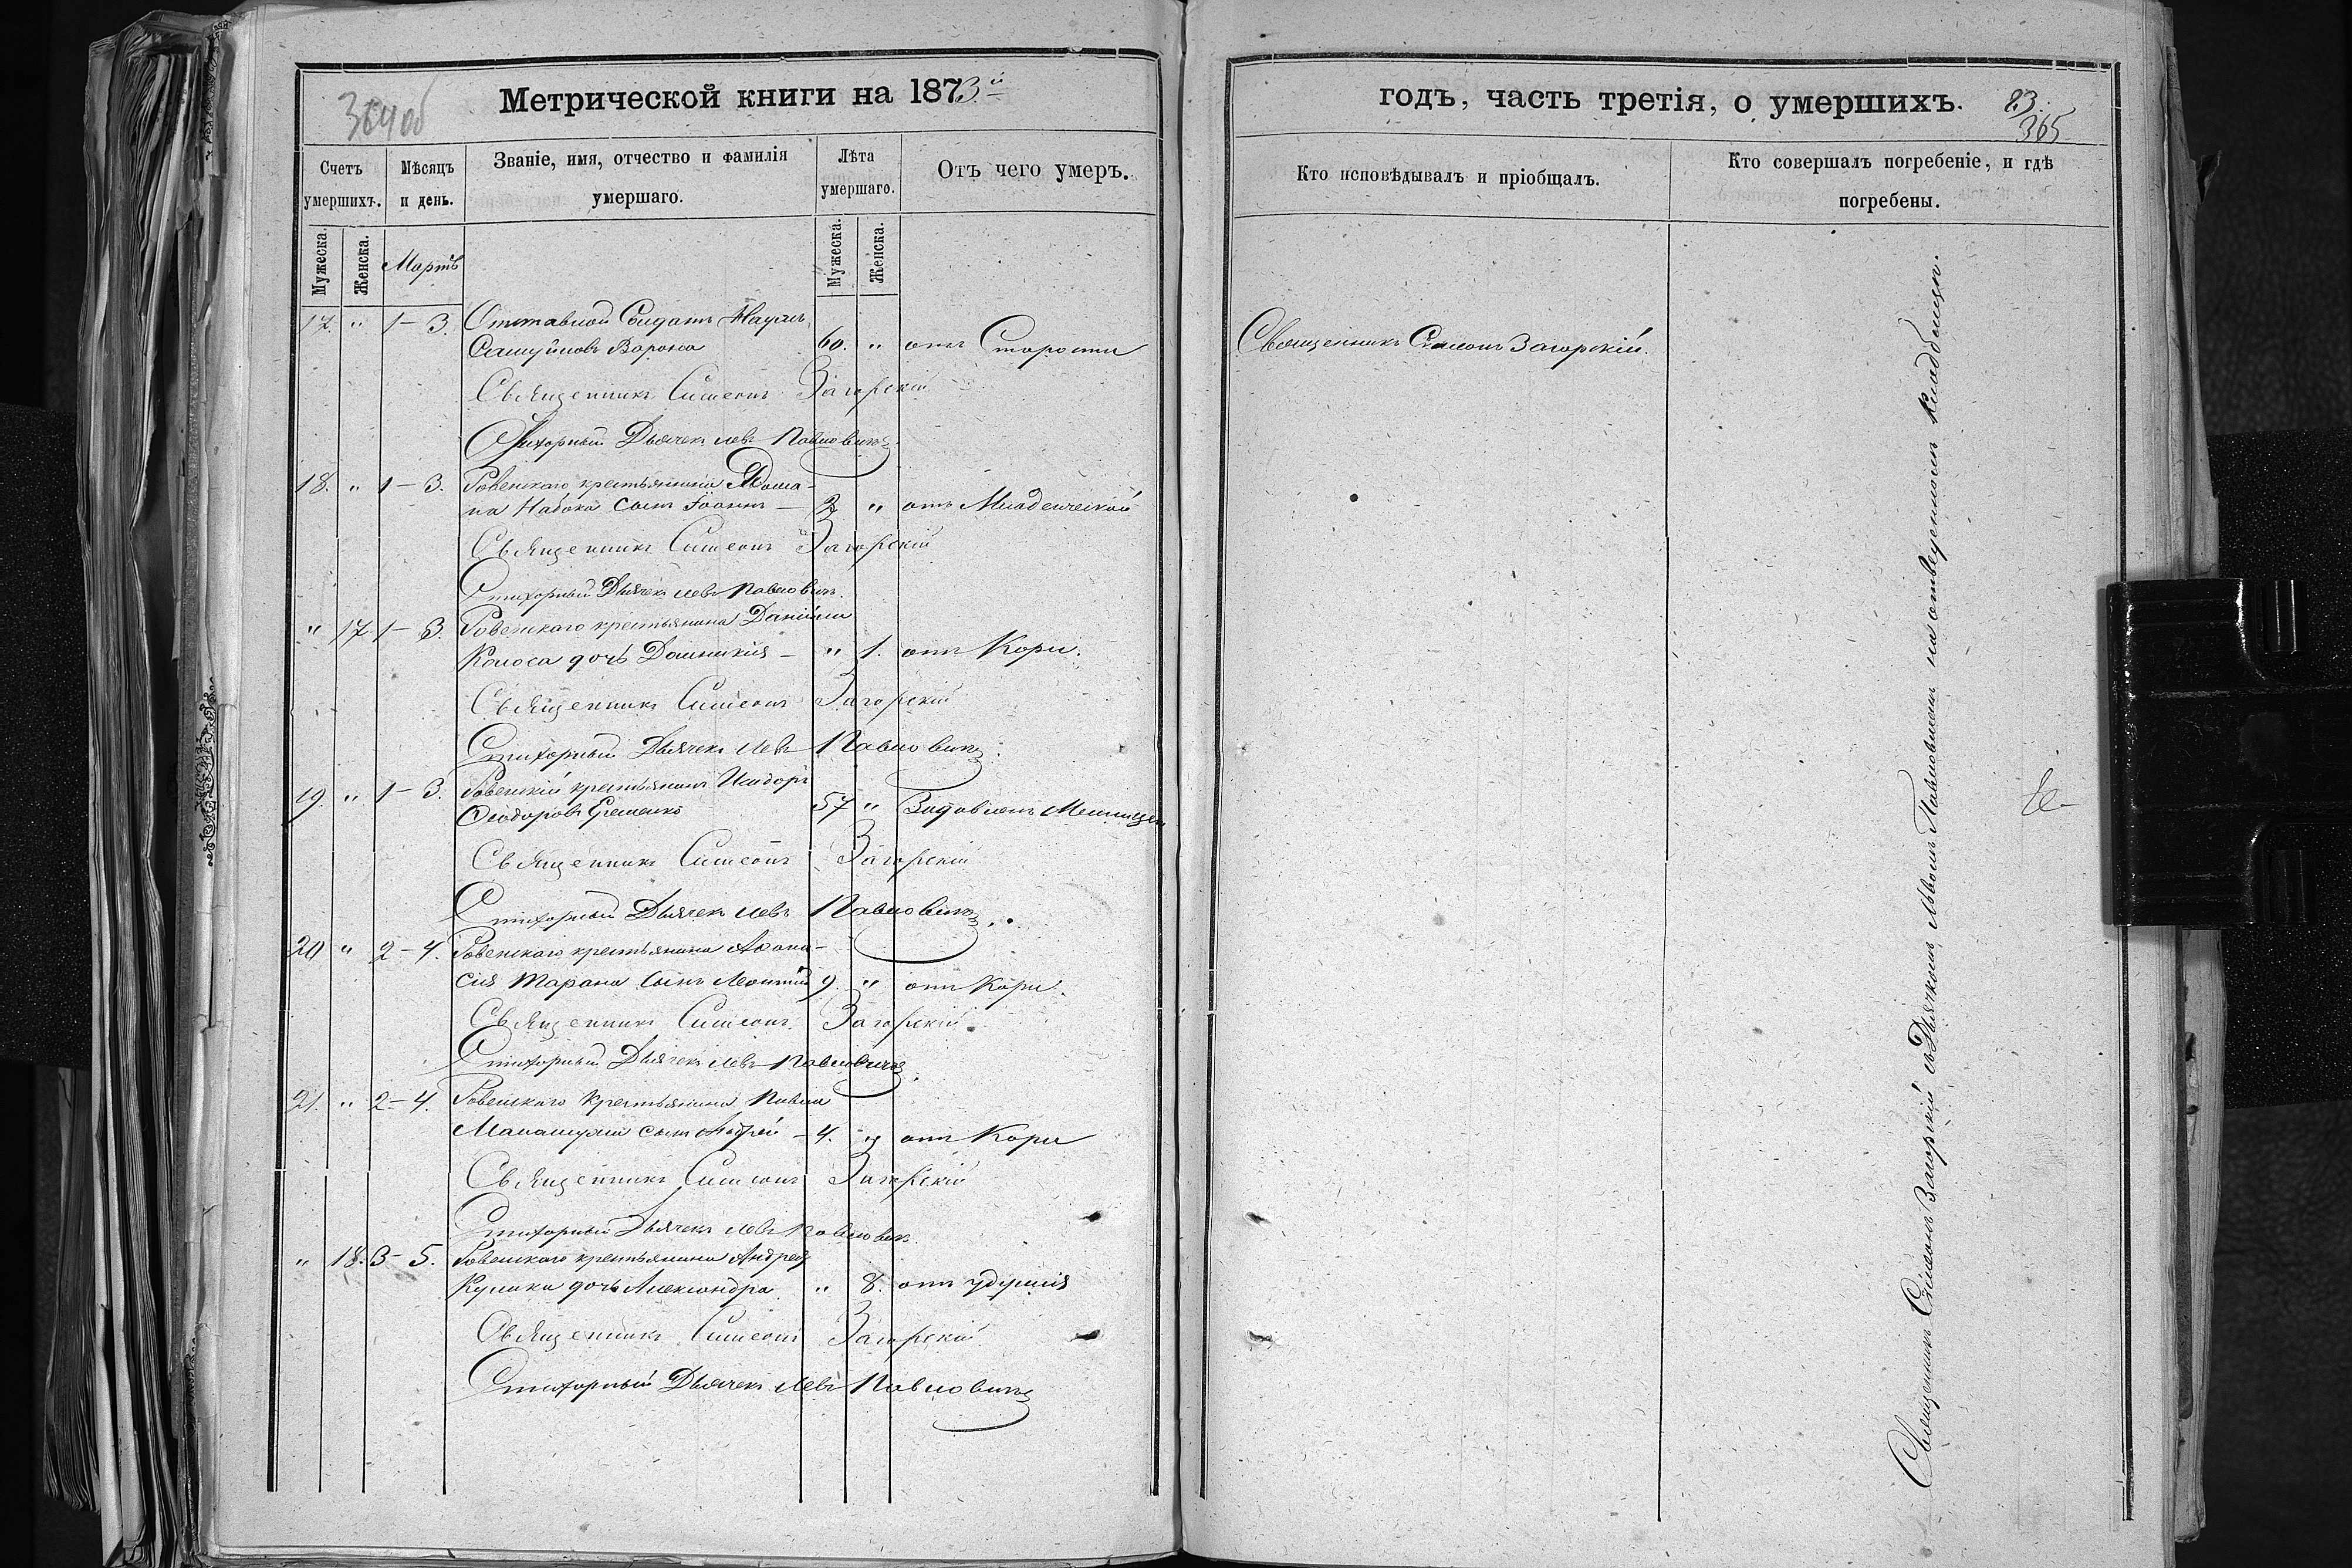 364 об
Метрической книги на 1873й
Счетъ умершихъ.
Мѣсяцъ и день.
Званіе, имя, отчество и фамилія умершаго.
Лѣта умершаго.
Отъ чего умеръ.
Мужеска.
Женска.
Мартъ
Мужеска.
Женска.
17. " 1 – 3. Отставной Солдатъ Наумъ
Самуйловъ Ворона 60. " отъ Старости
Священникъ Симеонъ Загорскій
Стихорный Дьячекъ Левъ Павловичъ
18. " 1 – 3. Ровенскаго крестьянина Рома-
на Набока сынъ Іоаннъ – 2 " отъ Младенческой
Священникъ Симеонъ Загорскій
Стихорный Дьячекъ Левъ Павловичъ.
" 17 1 – 3. Ровенскаго крестьянина Даніила
Колоса дочь Домникія – " 1. отъ Кори.
Священникъ Симеонъ Загорскій
Стихорный Дьячекъ Левъ Павловичъ.
19. " 1 – 3. Ровенскій крестьянинъ Исидоръ
Ѳеодоровъ Еременко 57 " Задавленъ Мельницей
Священникъ Симеонъ Загорскій
Стихорный Дьячекъ Левъ Павловичъ.
20 " 2 – 4. Ровенскаго крестьянина Аѳана-
сія Тарана сынъ Леонтій 9. " отъ Кори.
Священникъ Симеонъ Загорскій.
Стихорный Дьячекъ Левъ Павловичъ.
21. " 2 – 4. Ровенскаго Крестьянина Павла
сынъ Андрей – 4. " отъ Кори
Священникъ Симеонъ Загорскій
Стихорный Дьячекъ Левъ Павловичъ.
" 18. 3 – 5. Ровенскаго крестьянина Андрея
Кулика дочь Александра " 8. отъ удушія
Священникъ Симеонъ Загорскій
Стихорный Дьячекъ Левъ Павловичъ
годъ, часть третія, о умершихъ.
83.
365
Кто исповѣдывалъ и пріобщалъ.
Кто совершалъ погребеніе, и гдѣ погребены.
Священникъ Симеонъ Загорскій.
Священникъ Симеонъ Загорскій съ Дьячкомъ Львомъ Павловичемъ на отведенномъ Кладбищи.